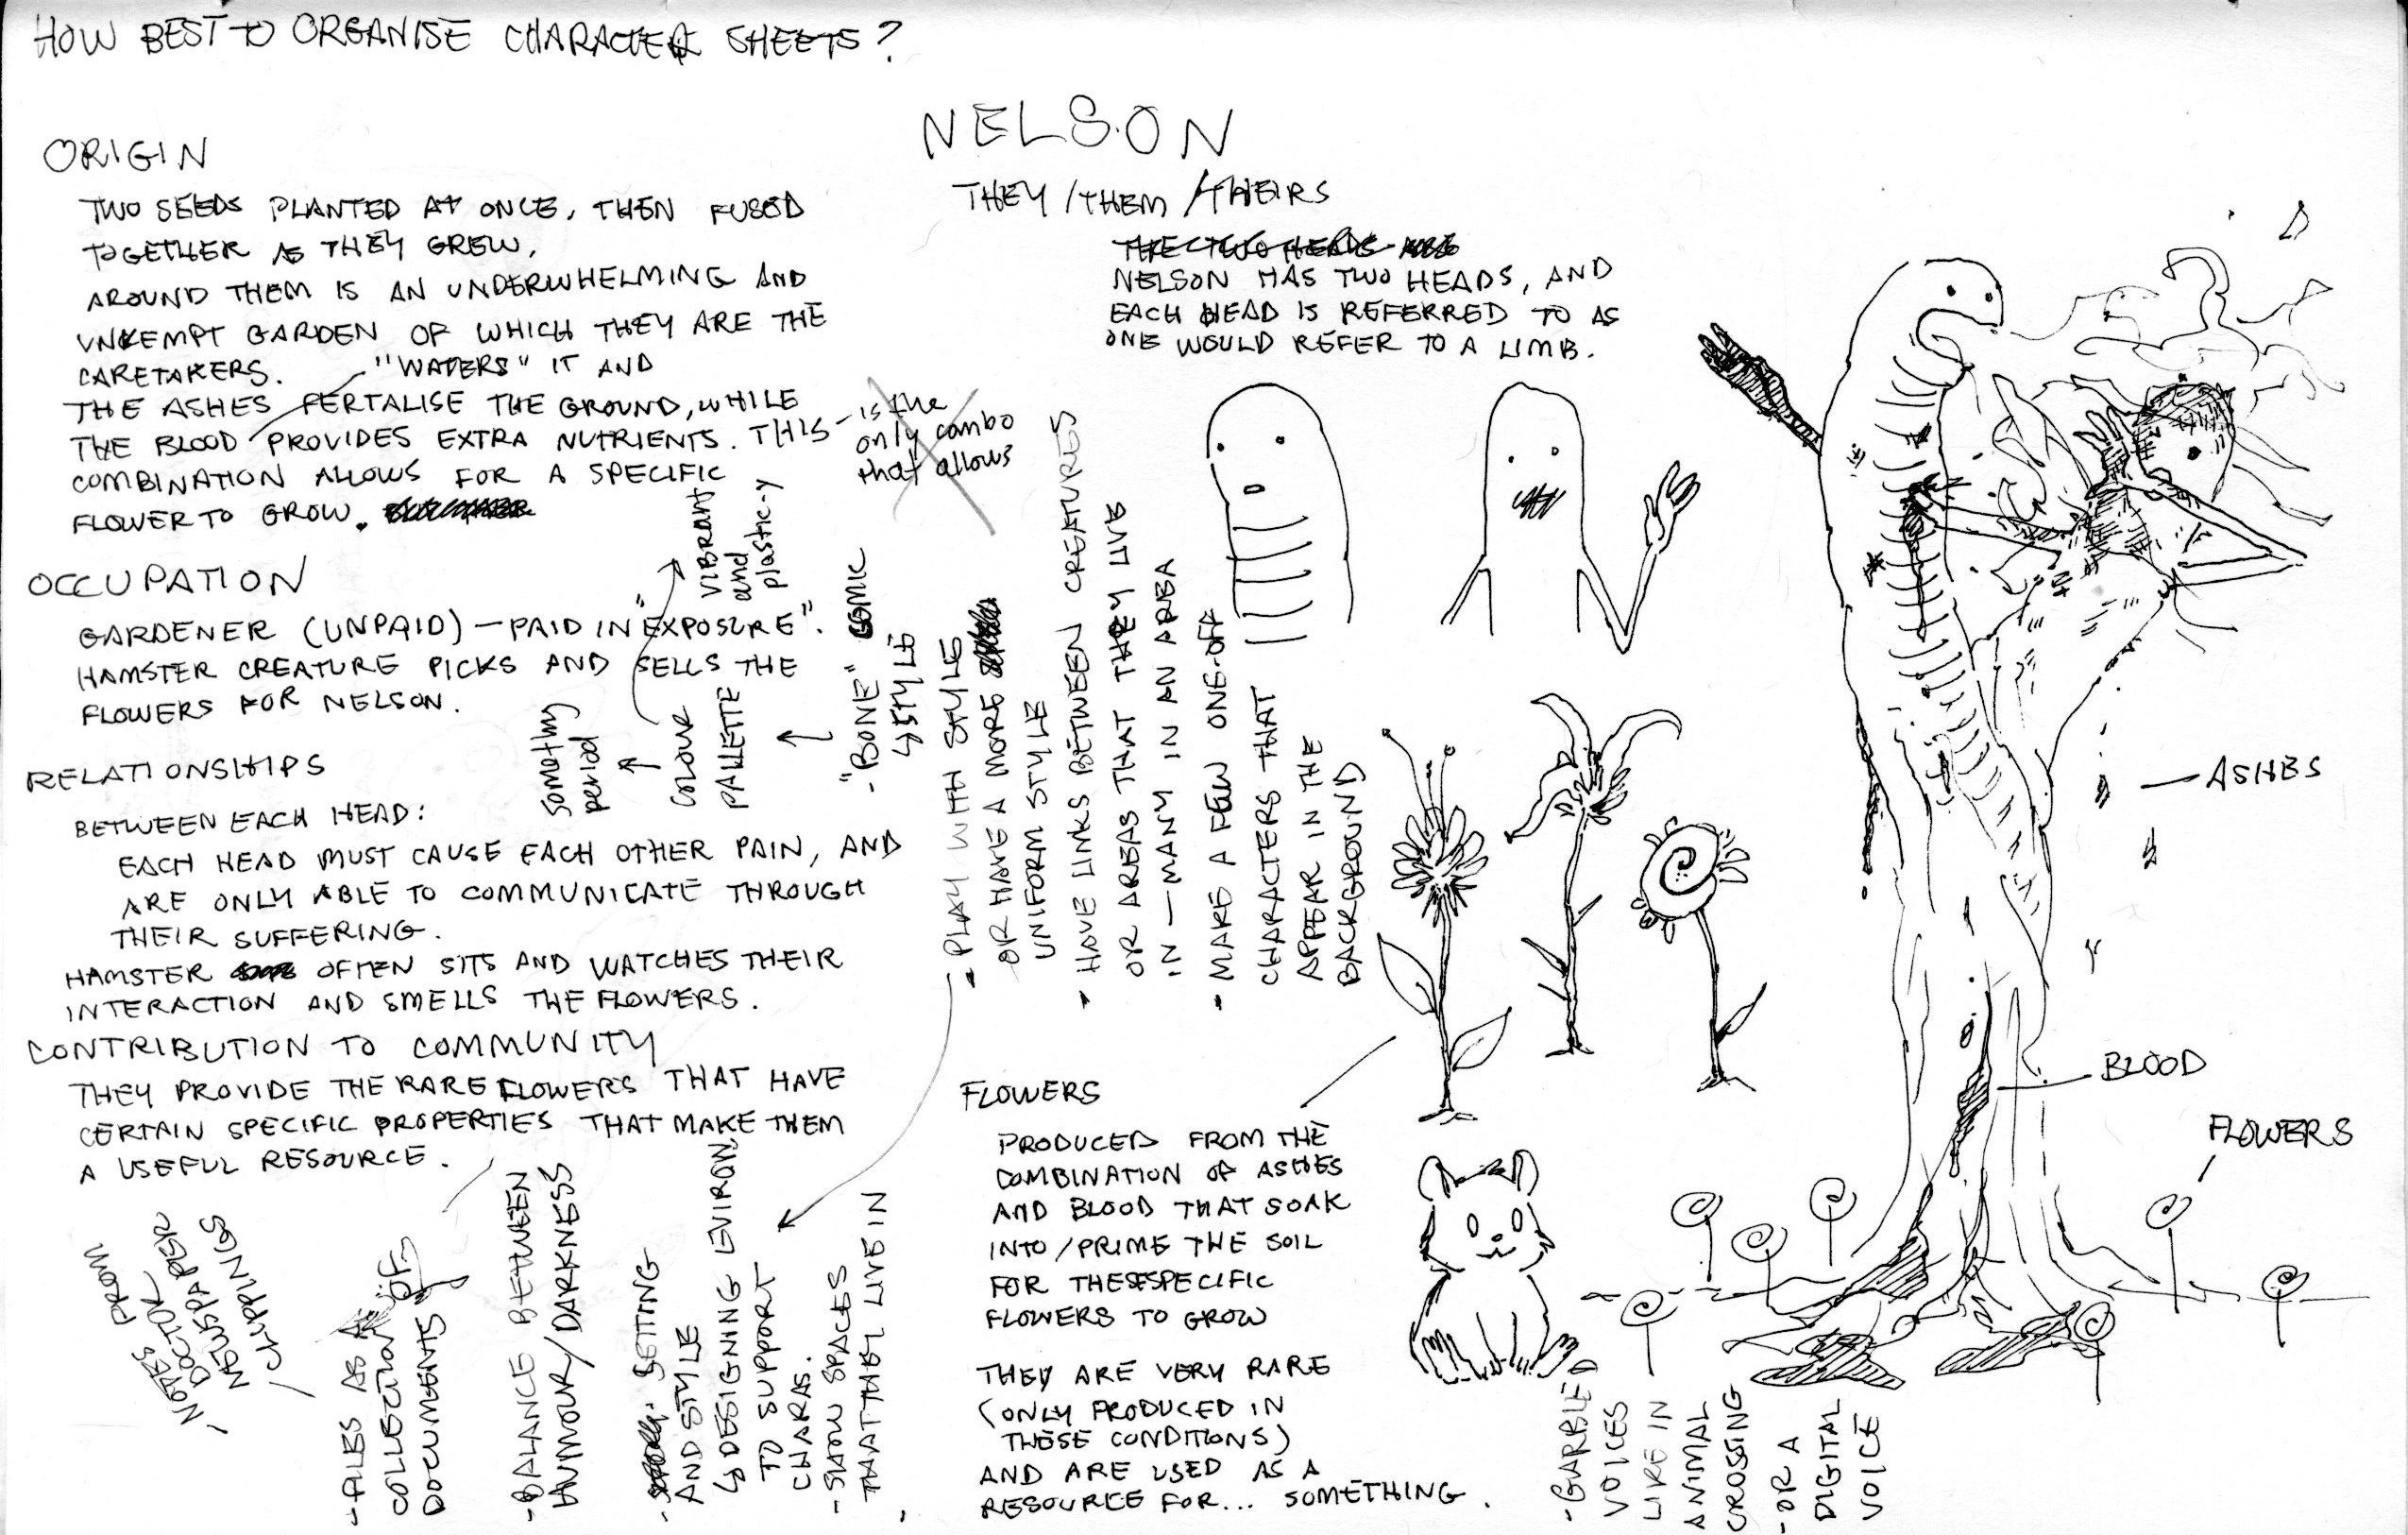 HOW BEST TO ORGANISE CHARACTER SHEETS?
ORIGIN
TWO SEEDS PLANTED AT ONCE, THEN FUSED
TOGETHER AS THEY GREW.
AROUND THEM IS AN UNDERWHELMING AND
UNKEMPT GARDEN OF WHICH THEY ARE THE
CARETAKERS.
"WATERS" IT AND
THE ASHES FERTALISE THE GROUND, WHILE
THE BLOOD PROVIDES EXTRA NUTRIENTS. THIS
COMBINATION ALLOWS FOR A SPECIFIC
FLOWER TO GROW.
is the
only combo
that allows
OCCUPATION
GARDENER (UNPAID) — PAID IN "EXPOSURE".
HAMSTER CREATURE PICKS AND SELLS THE
FLOWERS FOR NELSON.
RELATIONSHIPS
BETWEEN EACH HEAD:
EACH HEAD MUST CAUSE EACH OTHER PAIN, AND
ARE ONLY ABLE TO COMMUNICATE THROUGH
THEIR SUFFERING.
HAMSTER OFTEN SITS AND WATCHES THEIR
INTERACTION AND SMELLS THE FLOWERS.
CONTRIBUTION TO COMMUNITY
THEY PROVIDE THE RARE FLOWERS THAT HAVE
CERTAIN SPECIFIC PROPERTIES THAT MAKE THEM
A USEFUL RESOURCE.
NOTES FROM
DOCTOR
NEWSPAPER
CLIPPINGS
- FILES AS A
COLLECTION OF
DOCUMENTS
- BALANCE BETWEEN
HUMOUR/DARKNESS
- SETTING
AND STYLE
↳ DESIGNING EVIRON.
TO SUPPORT
CHARAS.
- SHOW SPACES
THAT THEY LIVE IN
Something
period
COLOUR
PALLETTE
VIBRANT
and
plastic-y
- "BONE" COMIC
↳ STYLE
• PLAY WITH STYLE
OR HAVE A MORE
UNIFORM STYLE
• HAVE LINKS BETWEEN CREATURES
OR AREAS THAT THEY LIVE
IN — MANY IN AN AREA
• MAKE A FEW ONE-OFF
CHARACTERS THAT
APPEAR IN THE
BACKGROUND
NELSON
THEY/THEM/THEIRS
THE TWO HEADS
NELSON HAS TWO HEADS, AND
EACH HEAD IS REFERRED TO AS
ONE WOULD REFER TO A LIMB.
FLOWERS
PRODUCED FROM THE
COMBINATION OF ASHES
AND BLOOD THAT SOAK
INTO/PRIME THE SOIL
FOR THESE SPECIFIC
FLOWERS TO GROW
THEY ARE VERY RARE
(ONLY PRODUCED IN
THESE CONDITIONS)
AND ARE USED AS A
RESOURCE FOR... SOMETHING.
- GARBLED
VOICES
LIKE IN
ANIMAL
CROSSING
- OR A
DIGITAL
VOICE
ASHES
BLOOD
FLOWERS